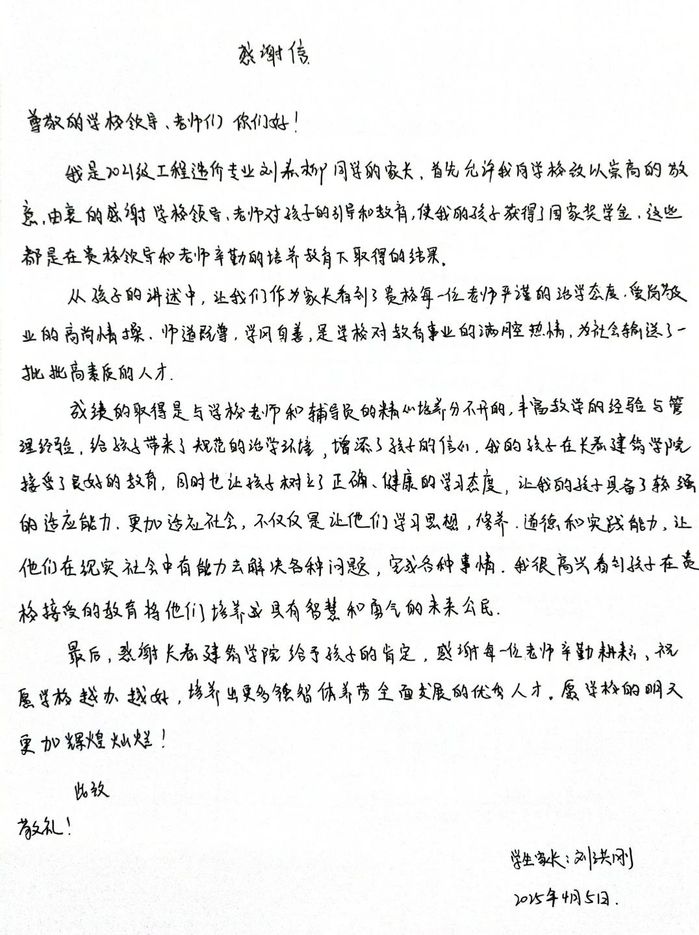 感谢信
尊敬的学校领导、老师们 你们好！
我是2021级工程造价专业刘柳同学的家长，首先允许我向学校致以崇高的敬
意，由衷的感谢学校领导、老师对孩子的引导和教育，使我的孩子获得了国家奖学金，这些
都是在贵校领导和老师辛勤的培养教育下取得的结果。
从孩子的讲述中，让我们作为家长看到了贵校每一位老师严谨的治学态度，爱岗敬
业的高尚情操。师道既尊，学风自善，是学校对教育事业的满腔热情，为社会输送了一
批批高素质的人才.
成绩的取得是与学校老师和辅导员的精心培养分不开的，丰富教学的经验与管
理经验，给孩子带来了规范的治学环境，增添了孩子的信心，我的孩子在长春建筑学院
接受了良好的教育，同时也让孩子树立了正确、健康的学习态度，让我的孩子具备了较强
的适应能力.更加适应社会，不仅仅是让他们学习思想，修养.道德和实践能力，让
他们在现实社会中有能力去解决各种问题，完成各种事情.我很高兴看到孩子在贵
校接受的教育将他们培养成具有智慧和勇气的未来公民.
最后，感谢长春建筑学院给予孩子的肯定，感谢每一位老师辛勤耕耘，祝
愿学校越办越好，培养出更多德智体美劳全面发展的优秀人才。愿学校的明天
更加辉煌灿烂！
此致
敬礼！
学生家长：刘洪刚
2025年4月5日.